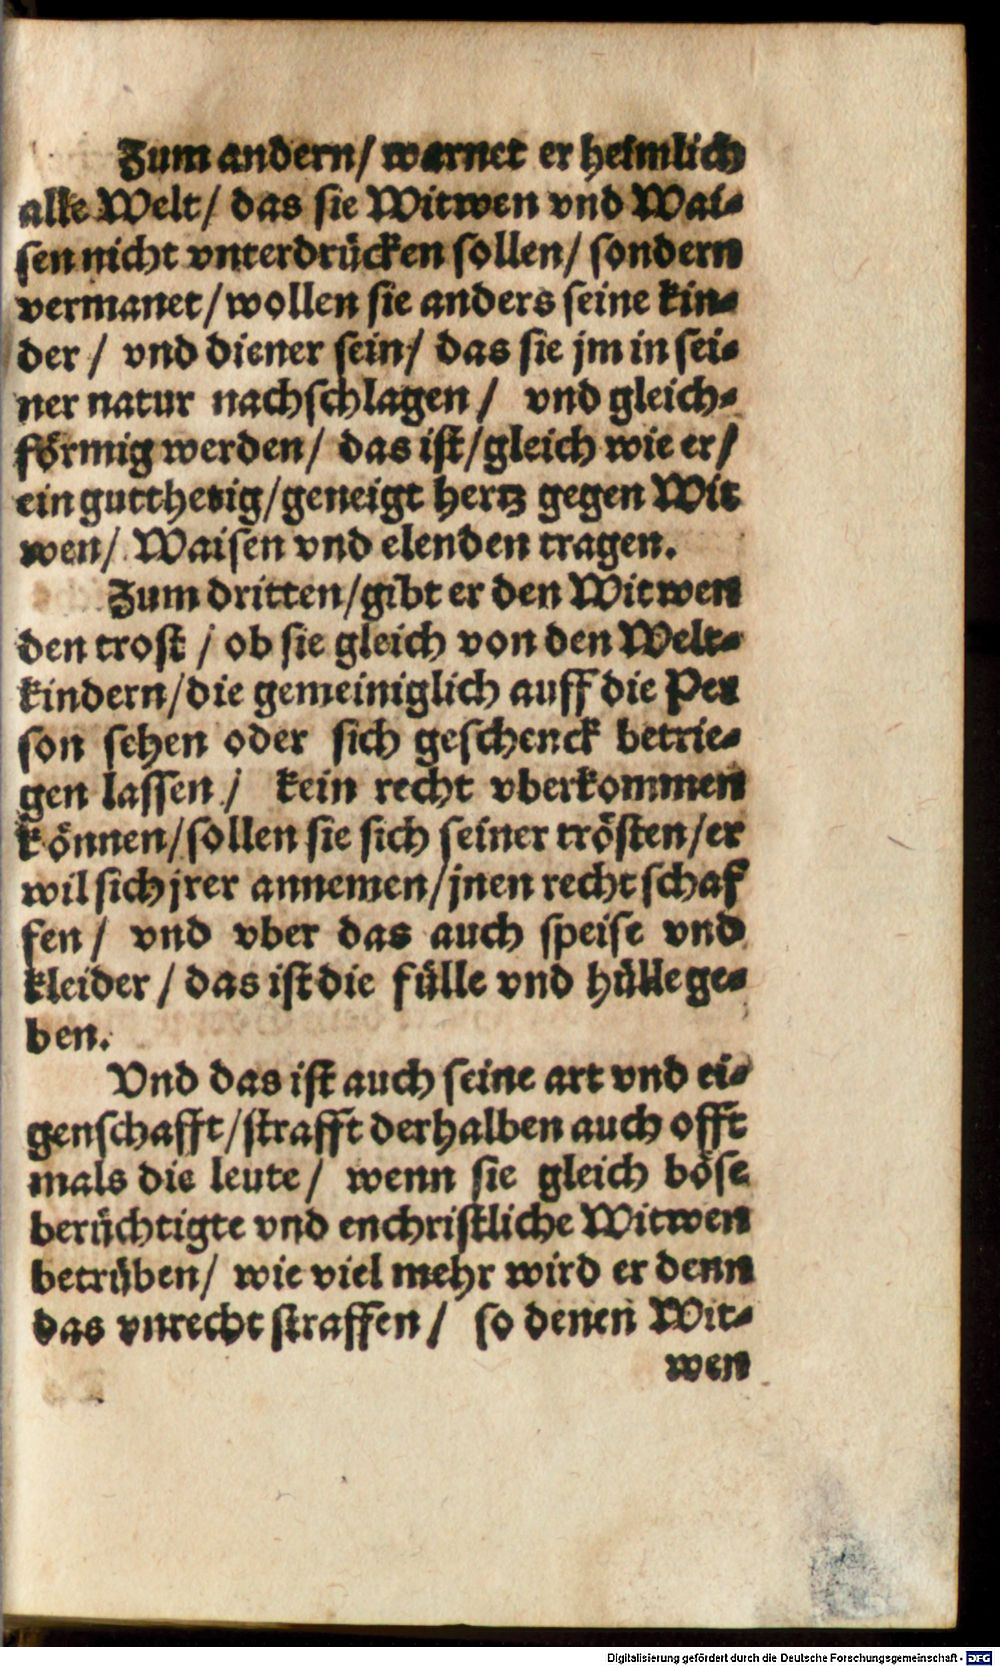 Zum andern/ warnet er heimlich
alle Welt/ das sie Witwen vnd Wai-
sen nicht vnterdrücken sollen/ sondern
vermanet/ wollen sie anders seine kin-
der/ vnd diener sein/ das sie jm in sei-
ner natur nachschlagen/ vnd gleich-
förmig werden/ das ist/ gleich wie er/
ein gutthetig/ geneigt hertz gegen Wit
wen/ Waisen vnd elenden tragen.
Zum dritten/ gibt er den Witwen
den trost/ ob sie gleich von den Welt-
kindern/ die gemeiniglich auff die Per
son sehen oder sich geschenck betrie-
gen lassen/ kein recht vberkommen
können/ sollen sie sich seiner trösten/ er
wil sich jrer annemen/ jnen recht schaf
fen/ vnd vber das auch speise vnd
kleider/ das ist die fülle vnd hülle ge-
ben.
Vnd das ist auch seine art vnd ei-
genschafft/ strafft derhalben auch offt
mals die leute/ wenn sie gleich böse
berüchtigte vnd enchristliche Witwen
betrüben/ wie viel mehr wird er denn
das vnrecht straffen/ so denen Wit-
wen
Digitalisierung gefördert durch die Deutsche Forschungsgemeinschaft - DFG